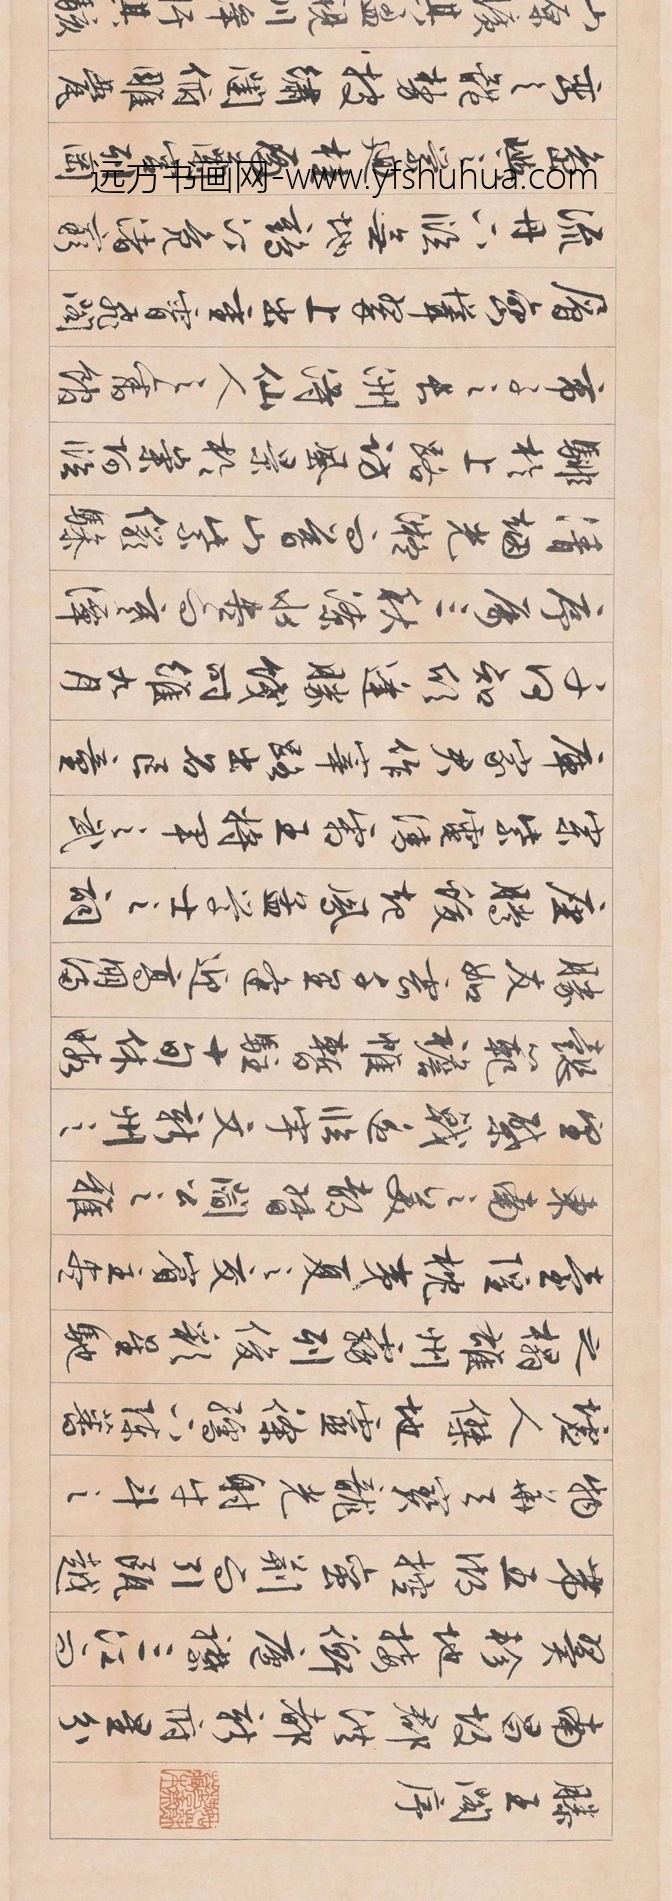 滕王閣序
南昌故郡洪都新府星分
翼軫地接衡廬襟三江而
帶五湖控蠻荊而引甌越
物華天寶龍光射牛斗之
墟人傑地靈徐孺下陳蕃
之榻雄州霧列俊彩星馳
臺隍枕夷夏之交賓主盡
東南之美都督閻公之雅
望棨戟遙臨宇文新州之
懿範襜帷暫駐十旬休暇
勝友如雲千里逢迎高朋滿
座騰蛟起鳳孟學士之詞
宗紫電清霜王將軍之武
庫家君作宰路出名區童
子何知躬逢勝餞時維九月
序屬三秋潦水盡而寒潭
清煙光凝而暮山紫儼驂
騑於上路訪風景於崇阿臨
帝子之長洲得仙人之舊館
層巒聳翠上出重霄飛閣
流丹下臨無地鶴汀鳧渚窮
島嶼之縈迴桂殿蘭宮列岡
巒之體勢披繡闥俯雕甍
山原曠其盈視川澤盱其駭
远方书画网-www.yfshuhua.com